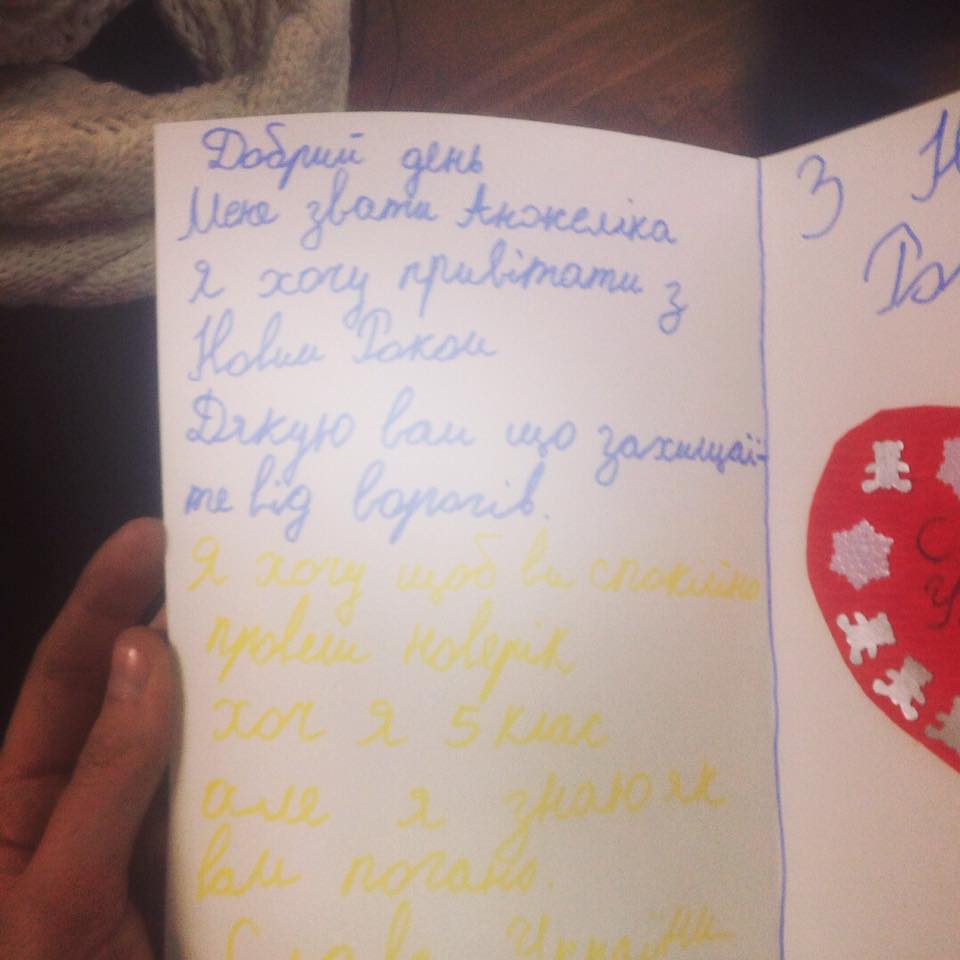 Добрий день
Мене звати Анжеліка
Я хочу привітати з
Новим Роком
Дякую вам що захищаї-
те від ворогів.
Я хочу щоб ви спокійно
провели новерік
хоч я 5 клас
але я знаю як
вам погано.
Слава Україні
З Н